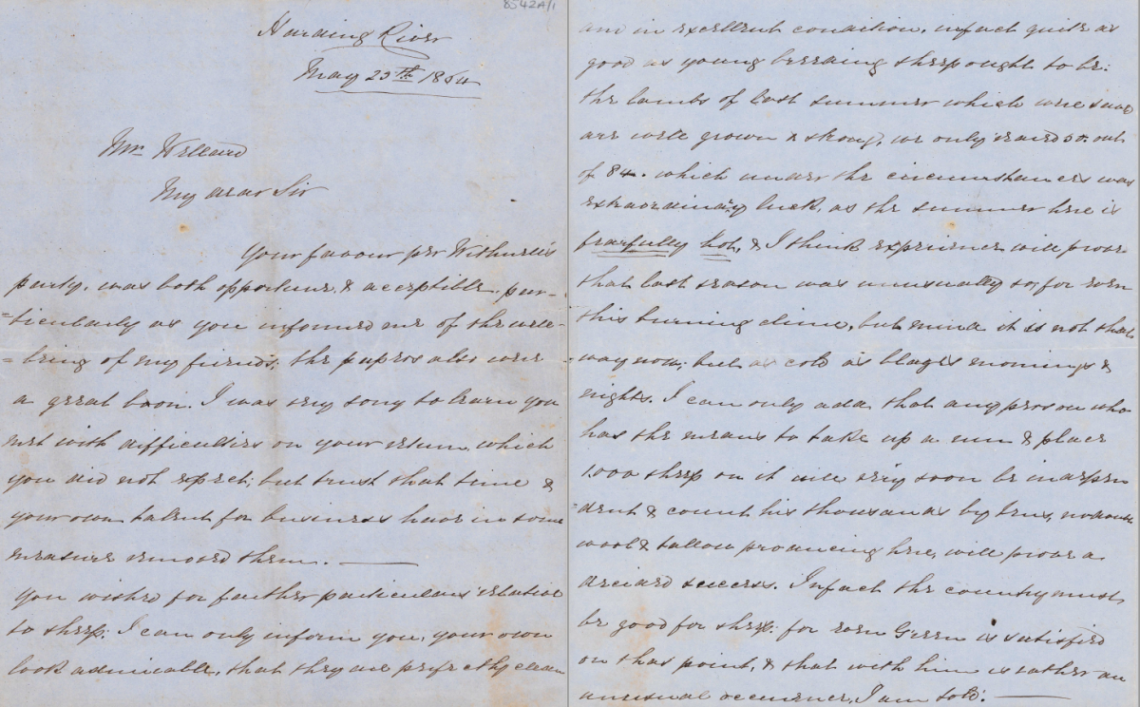 8542A/1
Harding River
May 25th 1864
Mr Wellard
My dear Sir
Your favour per Withnell's
party, was both opportune & acceptible, par-
=ticularly as you informed me of the well-
=being of my friends; the papers also were
a great boon. I was very sorry to learn you
met with difficulties on your return which
you did not expect, but trust that time &
your own talent for business have in some
measure removed them. ———
You wished for further particulars relative
to sheep. I can only inform you, your own
look admirable, that they are perfectly clean
and in excellent condition, infact quite as
good as young breeding sheep ought to be:
the lambs of last summer which were saved
are well grown & strong, we only reared 50 out
of 84. which under the circumstances was
extraordinary luck, as the summer here is
fearfully hot, & I think experience will prove
that last season was unusually so, for even
this burning clime, but mind it is not that
way now; but as cold as blazes mornings &
nights. I can only add that any person who
has the means to take up a run & place
1000 sheep on it will very soon be indepen
=dent & count his thousands by tens, no doubt
wool & tallow producing here, will prove a
decided success. Infact the country must
be good for sheep: for even Green is satisfied
on that point, & that with him is rather an
unusual occurrence, I am told. ———